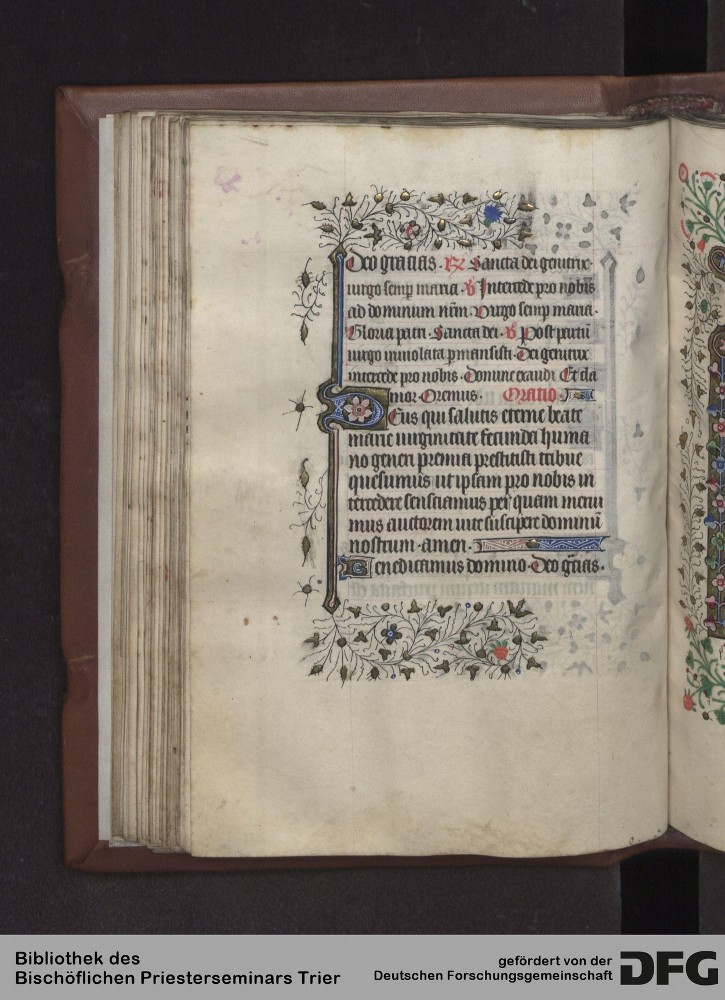 Deo gratias. ℟ Sancta dei genitrix
uirgo semp maria. ℣ Intercede pro nobis
ad dominum nr̄m. Uirgo semp maria.
Gloria patri. Sancta dei. ℣ Post partū
uirgo inuiolata pmansisti. Dei genitrix
intercede pro nobis. Domine exaudi Et cla
mor. Oremus. Oratio
Deus qui salutis eterne beate
marie uirginitate fecunda huma
no generi premia prestitisti tribue
quesumus ut ipsam pro nobis in
tercedere senciamus per quam merui
mus auctorem uite suscipere dominū
nostrum. amen.
Benedicamus domino. Deo gr̄cias.
Bibliothek des
Bischöflichen Priesterseminars Trier
gefördert von der
Deutschen Forschungsgemeinschaft
DFG